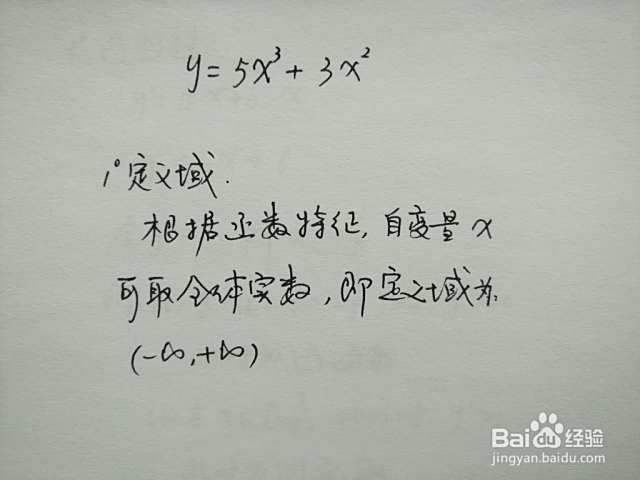 y = 5x³ + 3x²
1° 定义域.
根据函数特征, 自变量 x
可取全体实数, 即定义域为:
(-∞, +∞)
Baidu经验
jingyan.baidu.com